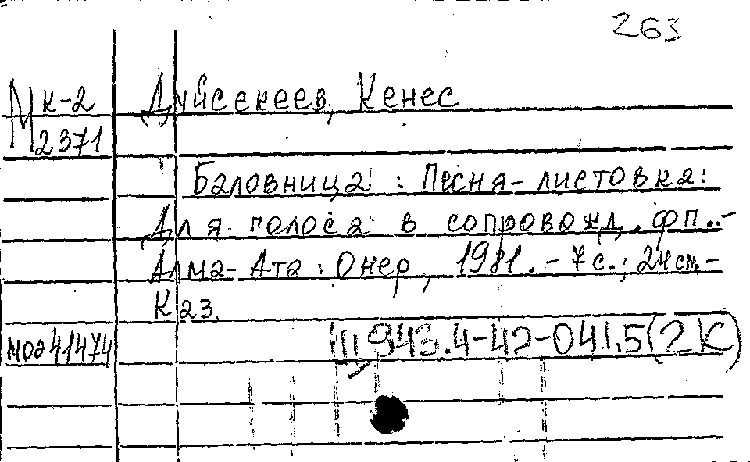 263
М к-2 Дуйсекеев, Кенес
2371
Баловница : Песня-листовка:
Для голоса в сопровожд. фп..-
Алма-Ата : Онер, 1981. - 7 с.; 24 см. -
Каз.
Щ943.4-42-041.5(2К)